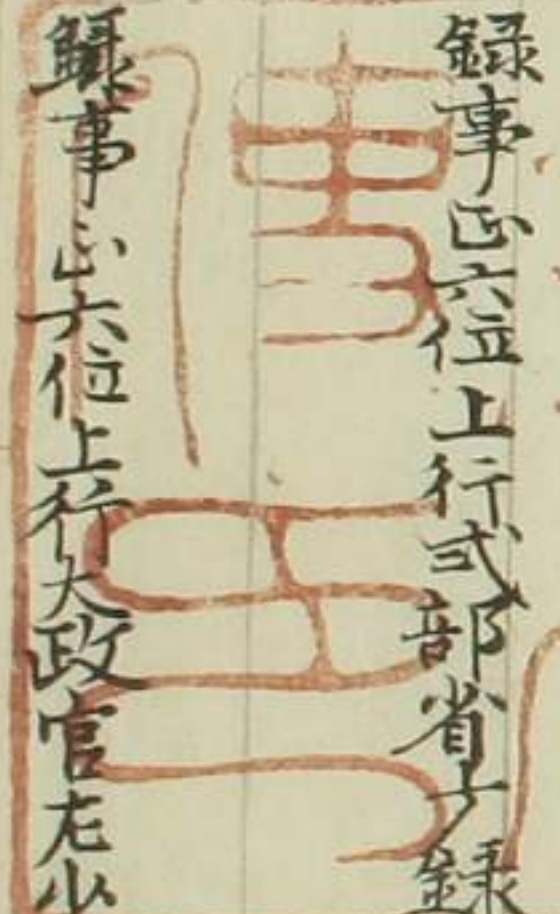 録事正六位上行式部省少録
録事正六位上行大政官左少